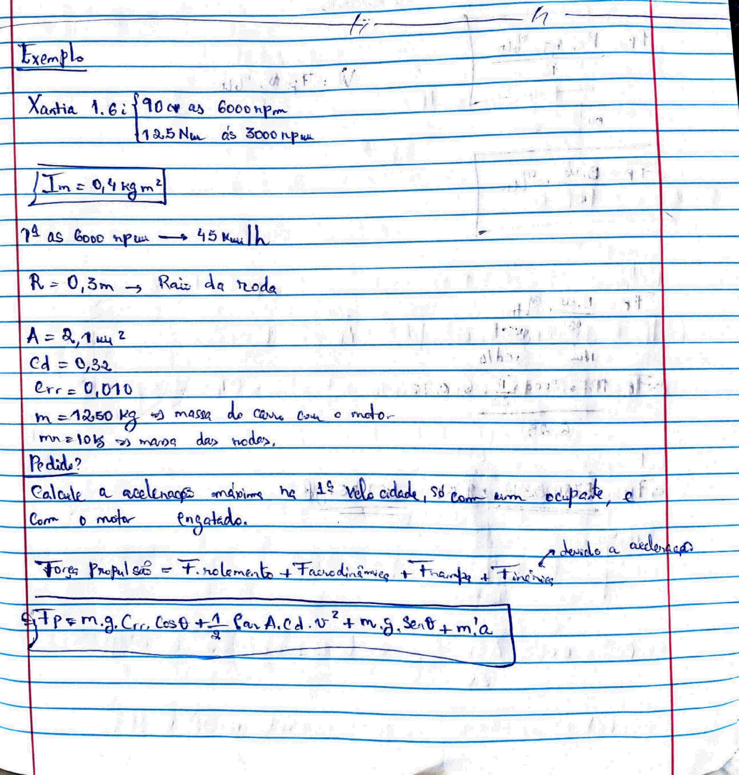 Exemplo
Xantia 1.6i { 90 cv as 6000 rpm
125 Nm ás 3000 rpm
Im = 0,4 kg m²
1ª as 6000 rpm → 45 Km/h
R = 0,3m → Raio da roda
A = 2,1 m²
Cd = 0,32
Crr = 0,010
m = 1250 kg => massa do carro com o motor
mr = 10 kg => massa das rodas.
Pedido?
Calcule a aceleração máxima na 1ª velocidade, só com um ocupante, e
com o motor engatado.
devido a aceleração
Força Propulsão = F.rolamento + Faerodinâmica + Frampa + Finércia
Fp = m.g.Crr.Cosθ + 1/2 ρar A.Cd.v² + m.g.Senθ + m'.a